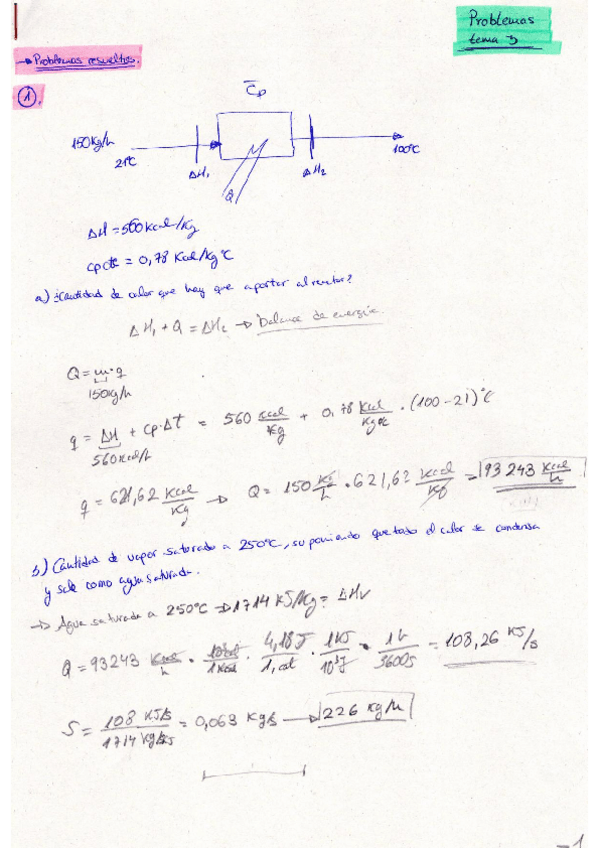 Problemas
tema 5
→ Problemas resueltos.
①.
C̅p
150 Kg/h
21ºC
ΔH₁
Q
ΔH₂
100ºC
ΔH = 560 Kcal/Kg
cp cte = 0,78 Kcal/KgºC
a) ¿Cantidad de calor que hay que aportar al reactor?
ΔH₁ + Q = ΔH₂ → Balance de energía
Q = m·q
150Kg/h
q = ΔH + cp·Δt = 560 Kcal/Kg + 0,78 Kcal/KgºC · (100-21)ºC
560 Kcal/h
q = 621,62 Kcal/Kg → Q = 150 Kg/h · 621,62 Kcal/Kg = 93 243 Kcal/h
b) Cantidad de vapor saturado a 250ºC, suponiendo que todo el calor se condensa
y sale como agua saturada.
→ Agua saturada a 250ºC → 1714 KJ/Kg = ΔHv
Q = 93243 Kcal/h · 10³cal/1Kcal · 4,18J/1,cal · 1KJ/10³J · 1h/3600s = 108,26 KJ/s
S = 108 KJ/s / 1714 = 0,063 Kg/s → 226 Kg/h
-1